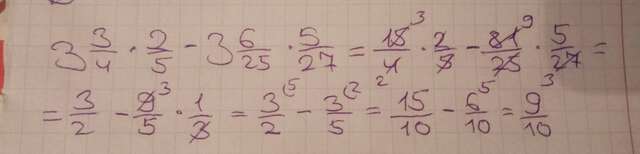 3 3/4 · 2/5 - 3 6/25 · 5/27 = 15 3/4 2 · 2/5 - 81 9/25 · 5/27 3 =
= 3/2 - 9 3/5 · 1/3 = 3 (5/2 - 3 (2/5 = 15/10 - 6 5/10 = 9/10